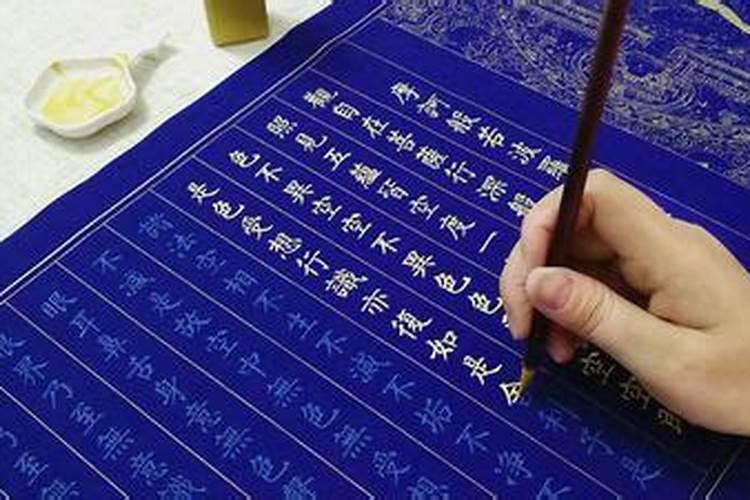 摩訶般若波羅
觀自在菩薩行深般
照見五蘊皆空度一
色不異空空不異色色空空即
是色受想行識亦復如是舍利子是
諸法空相不生不滅不垢不淨不
不減是故空中無色無受想
眼耳鼻舌身意無色聲
眼界乃至無意識
乃至無